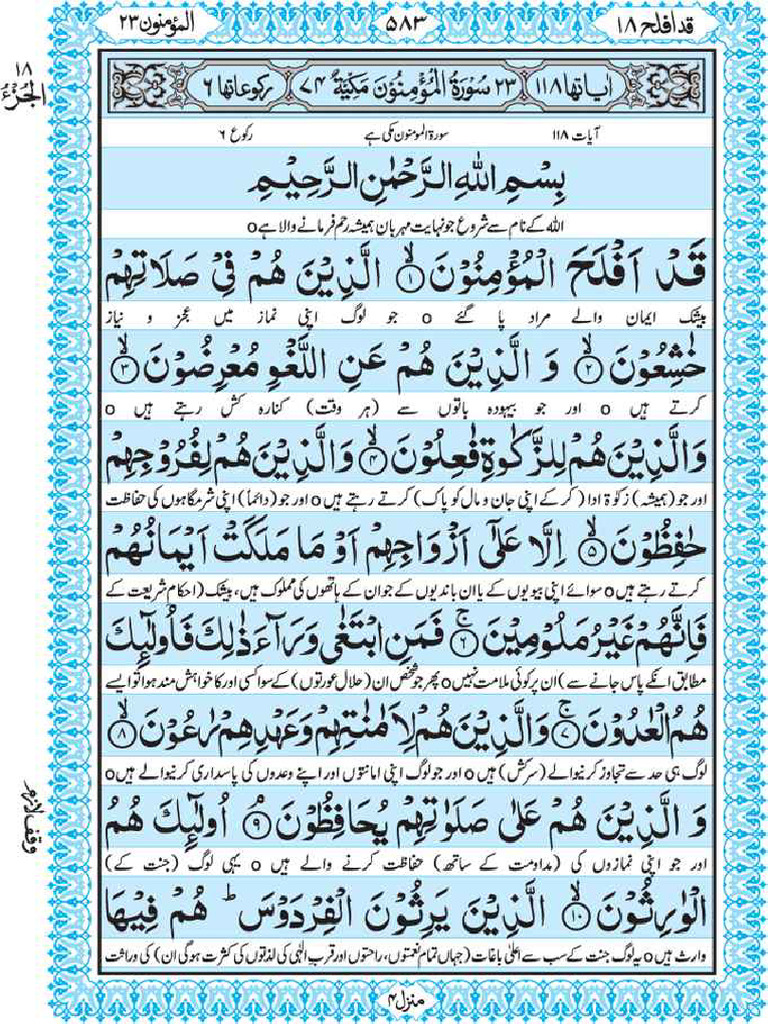 قد افلح ۱۸
۵۸۳
المؤمنون ۲۳
۱۸
الجزء
اٰیاتھا ۱۱۸ ۲۳ سُوْرَۃُ الْمُؤْمِنُوْنَ مَکِّیَّۃٌ ۷۴ رکوعاتھا ۶
آیات ۱۱۸ سورۃ المومنون مکی ہے رکوع ۶
بِسْمِ اللهِ الرَّحْمٰنِ الرَّحِيْمِ
اللہ کے نام سے شروع جو نہایت مہربان ہمیشہ رحم فرمانے والا ہے o
قَدْ اَفْلَحَ الْمُؤْمِنُوْنَ ۙ﴿۱﴾ الَّذِيْنَ هُمْ فِيْ صَلَاتِهِمْ
بیشک ایمان والے مراد پا گئے o جو لوگ اپنی نماز میں عجز و نیاز
خٰشِعُوْنَ ۙ﴿۲﴾ وَ الَّذِيْنَ هُمْ عَنِ اللَّغْوِ مُعْرِضُوْنَ ۙ﴿۳﴾
کرتے ہیں o اور جو بیہودہ باتوں سے (ہر وقت) کنارہ کش رہتے ہیں o
وَالَّذِيْنَ هُمْ لِلزَّكٰوةِ فٰعِلُوْنَ ۙ﴿۴﴾ وَالَّذِيْنَ هُمْ لِفُرُوْجِهِمْ
اور جو (ہمیشہ) زکوٰۃ ادا (کر کے اپنی جان و مال کو پاک) کرتے رہتے ہیں o اور جو (دائماً) اپنی شرمگاہوں کی حفاظت
حٰفِظُوْنَ ۙ﴿۵﴾ اِلَّا عَلٰٓى اَزْوَاجِهِمْ اَوْ مَا مَلَكَتْ اَيْمَانُهُمْ
کرتے رہتے ہیں o سوائے اپنی بیویوں کے یا ان باندیوں کے جو ان کے ہاتھوں کی مملوک ہیں، بیشک (احکامِ شریعت کے
فَاِنَّهُمْ غَيْرُ مَلُوْمِيْنَ ۚ﴿۶﴾ فَمَنِ ابْتَغٰى وَرَآءَ ذٰلِكَ فَاُولٰٓئِكَ
مطابق انکے پاس جانے سے) ان پر کوئی ملامت نہیں o پھر جو شخص ان (حلال عورتوں) کے سوا کسی اور کا خواہش مند ہوا تو ایسے
هُمُ الْعٰدُوْنَ ۚ﴿۷﴾ وَالَّذِيْنَ هُمْ لِاَمٰنٰتِهِمْ وَعَهْدِهِمْ رٰعُوْنَ ۙ﴿۸﴾
لوگ ہی حد سے تجاوز کرنیوالے (سرکش) ہیں o اور جو لوگ اپنی امانتوں اور اپنے وعدوں کی پاسداری کرنیوالے ہیں o
وَ الَّذِيْنَ هُمْ عَلٰى صَلَوٰتِهِمْ يُحَافِظُوْنَ ۘ﴿۹﴾ اُولٰٓئِكَ هُمُ
اور جو اپنی نمازوں کی (مداومت کے ساتھ) حفاظت کرنے والے ہیں o یہی لوگ (جنت کے)
الْوٰرِثُوْنَ ۙ﴿۱۰﴾ الَّذِيْنَ يَرِثُوْنَ الْفِرْدَوْسَ ؕ هُمْ فِيْهَا
وارث ہیں o یہ لوگ جنت کے سب سے اعلیٰ باغات (جہاں تمام نعمتوں، راحتوں اور قربِ الٰہی کی لذتوں کی کثرت ہوگی ان) کی وراثت
منزل ۴